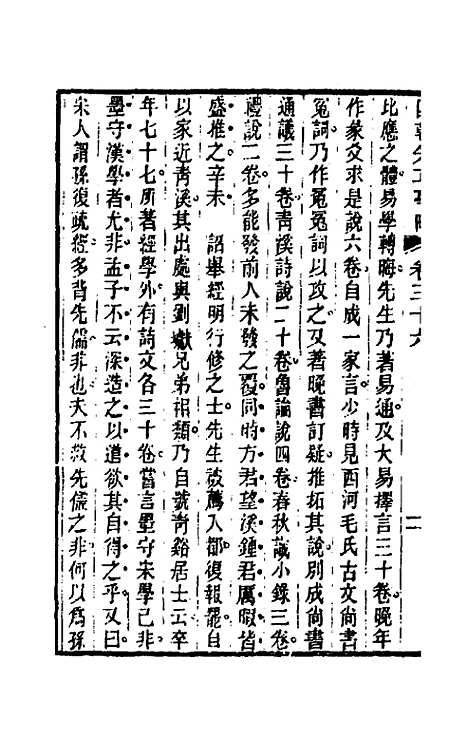 卷三十六
比應之體易學轉晦先生乃著易通及大易擇言三十卷晚年
作彖爻求是說六卷自成一家言少時見西河毛氏古文尚書
冤詞乃作冤冤詞以攻之又著晚書訂疑推拓其說別成尚書
通議三十卷青溪詩說二十卷魯論說四卷春秋識小錄三卷
禮說二卷多能發前人未發之覆同時方君望溪鍾君厲暇皆
盛推之辛未 詔舉經明行修之士先生被薦入都復報罷自
以家近青溪其出處與劉瓛兄弟相類乃自號青谿居士云卒
年七十七所著經學外有詩文各三十卷嘗言墨守宋學已非
墨守漢學者尤非孟子不云深造之以道欲其自得之乎又曰
宋人謂孫復疏經多背先儒非也夫不救先儒之非何以爲孫